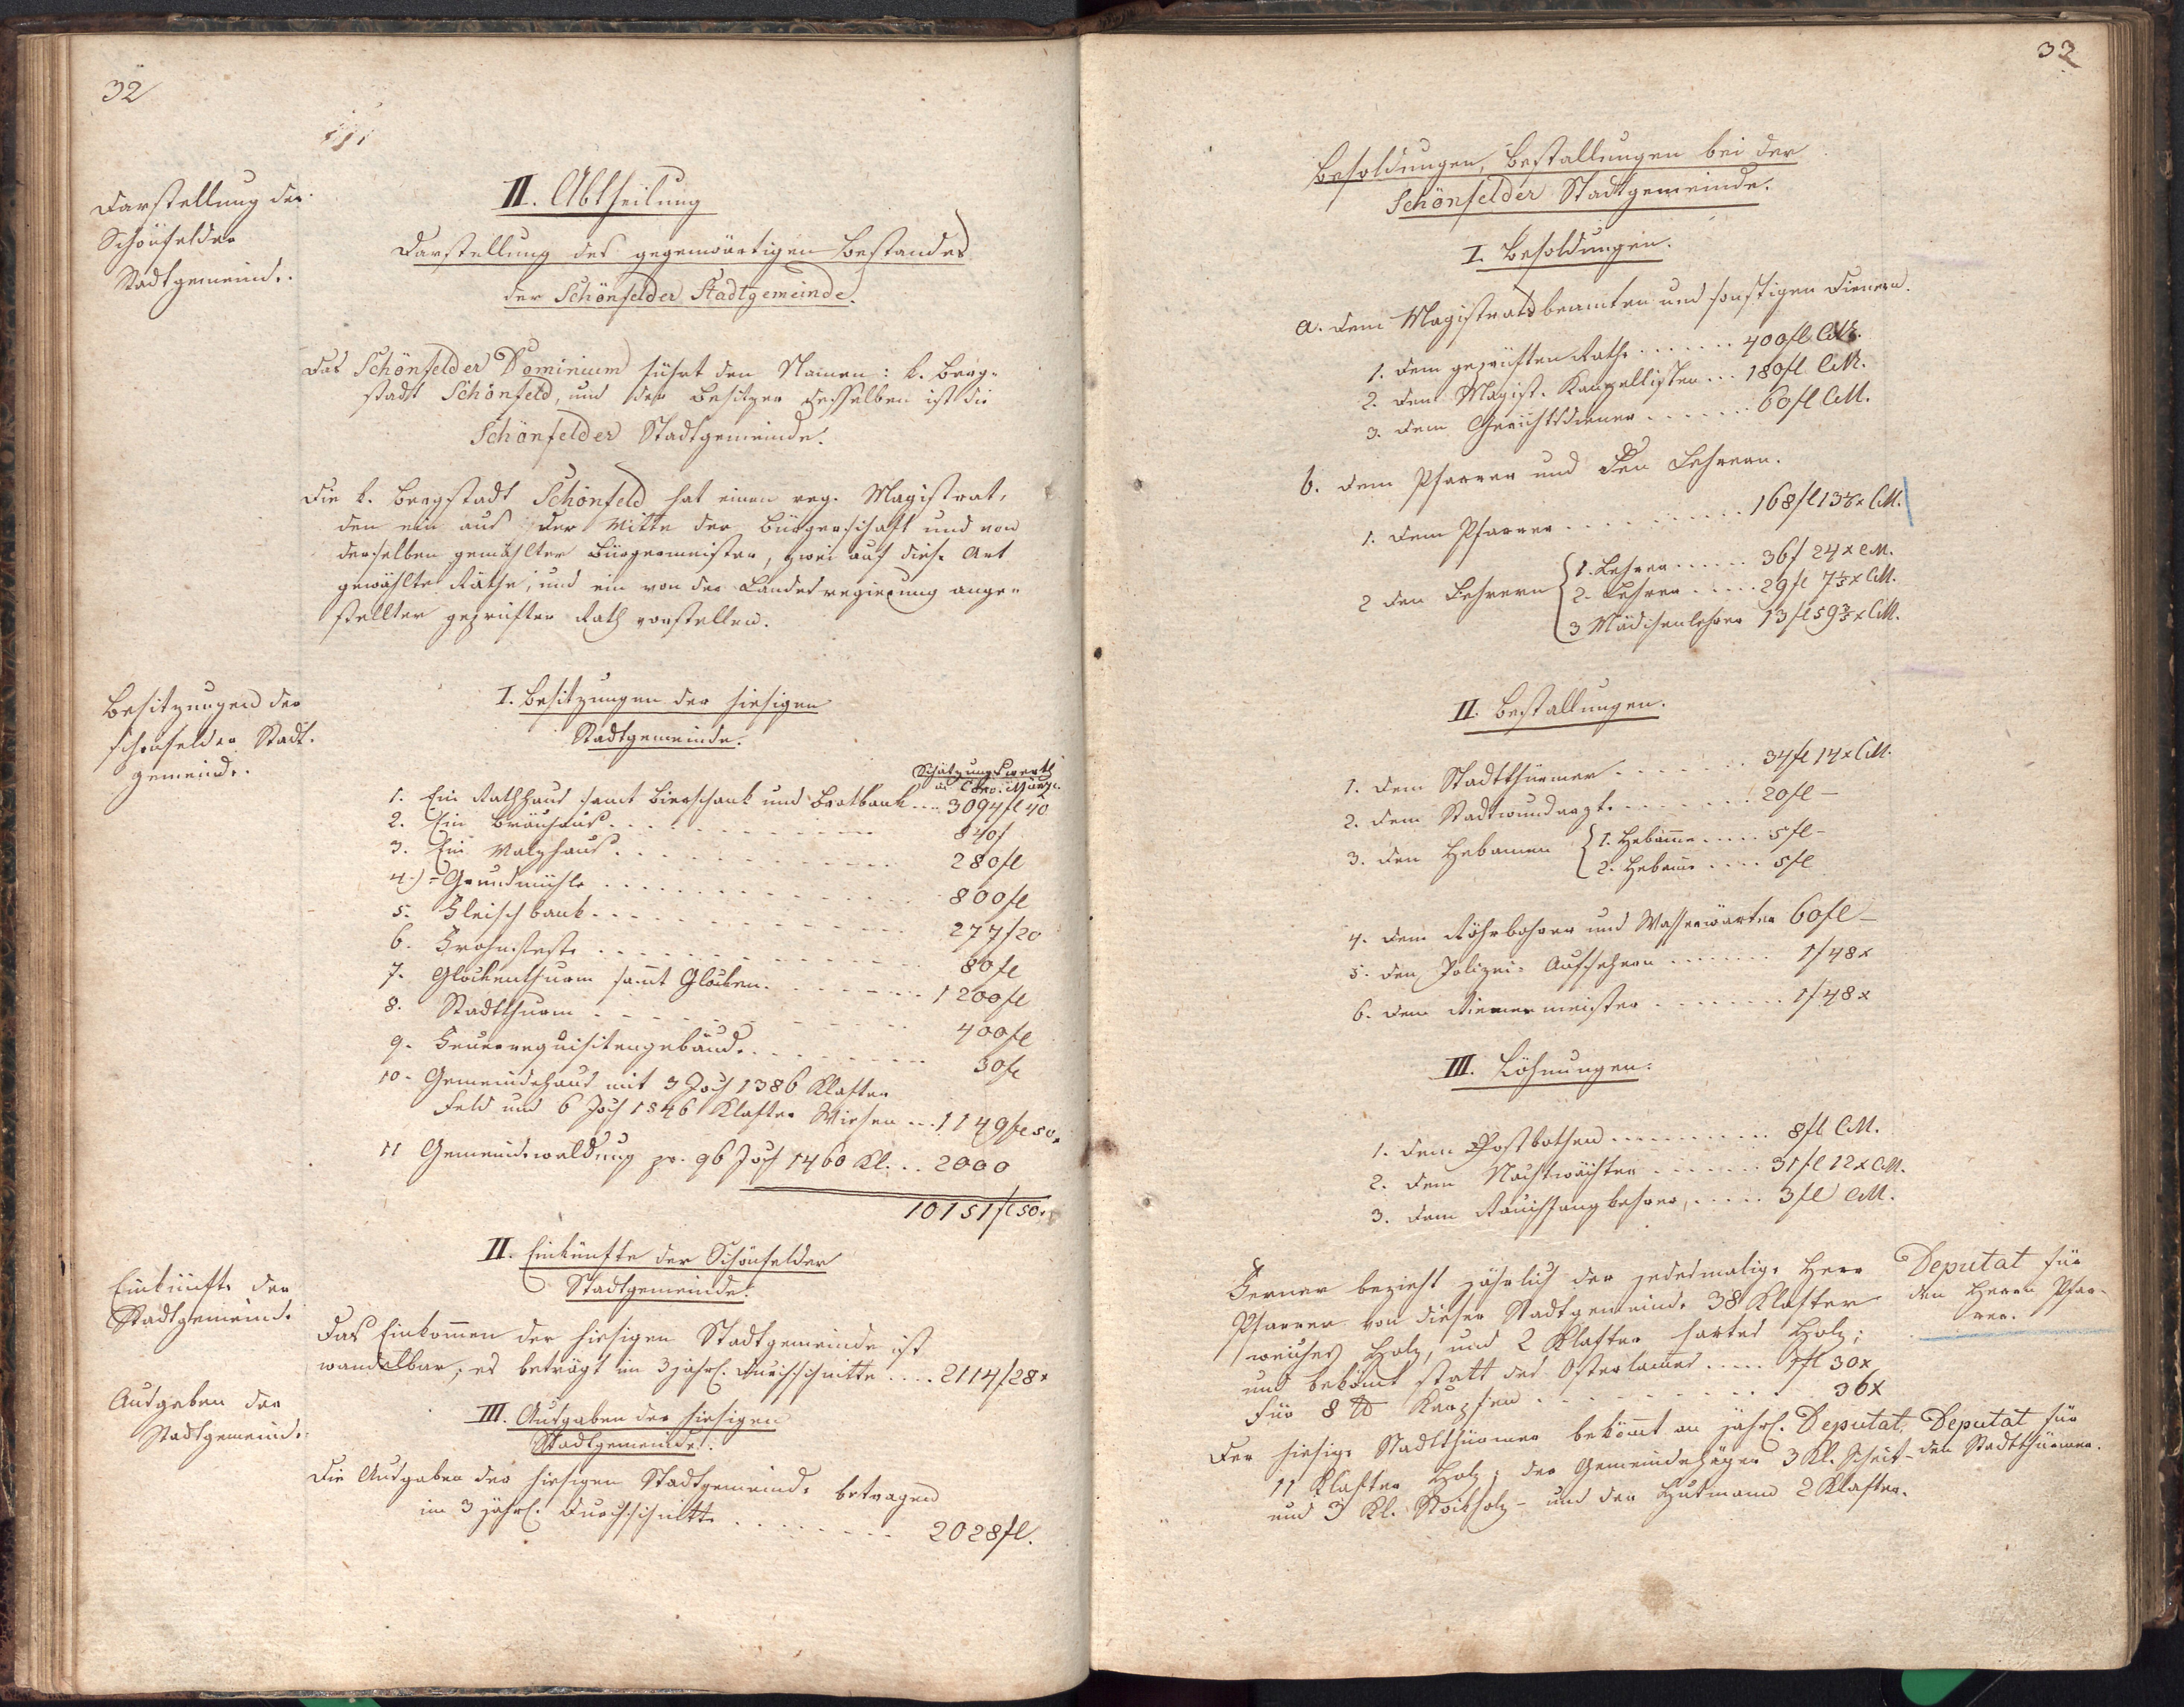 32
Darstellung der
Schönfelder
Stadtgemeinde.
II. Abtheilung
Darstellung des gegenwärtigen Bestandes
der Schönfelder Stadtgemeinde.
Das Schönfelder Dominium führt den Namen: k. Berg-
stadt Schönfeld, und der Besitzer desselben ist die
Schönfelder Stadtgemeinde.
Die k. Bergstadt Schönfeld hat einen reg. Magistrat,
den ein aus der Mitte der Bürgerschaft und von
derselben gewählter Bürgermeister, zwei auf diese Art
gewählte Räthe, und ein von der Landesregierung ange-
stellter geprüfter Rath vorstellen.
Besitzungen der
schönfelder Stadt-
gemeinde.
I. Besitzungen der hiesigen
Stadtgemeinde.
Schätzungswerth
in Conv. Münze
1. Ein Rathhaus samt Bierschank und Brotbank ... 3094 fl 40
2. Ein Bräuhaus ... 840 f
3. Ein Malzhaus ... 280 fl
4.) = Grundmühle ... 800 fl
5. Fleischbank ... 277 f 20
6. Frohnfeste ... 80 fl
7. Glockenthurm samt Glocken ... 1200 fl
8. Stadtthurm ... 400 fl
9. Feuerrequisitengebäude ... 30 fl
10. Gemeindehaus mit 3 Joch 1386 Klafter
Feld und 6 Joch 1546 Klafter Wiesen ... 1149 fl 50 x
11 Gemeindewaldung pr. 96 Joch 1460 Kl. .. 2000
10151 fl 50 x
Einkünfte der
Stadtgemeinde
II. Einkünfte der Schönfelder
Stadtgemeinde.
Das Einkomen der hiesigen Stadtgemeinde ist
wandelbar; es beträgt im 3 jährl. Durchschnitte .... 2114 f 28 x
Ausgaben der
Stadtgemeinde.
III. Ausgaben der hiesigen
Stadtgemeinde.
Die Ausgaben der hiesigen Stadtgemeinde betragen
im 3 jährl. Durchschnitte ... 2028 fl.
33
Besoldungen, Bestallungen bei der
Schönfelder Stadtgemeinde.
I. Besoldungen.
a. Dem Magistratsbeamten und sonstigen Dienern.
1. Dem geprüften Rathe ....... 400 fl CM.
2. Dem Magist. Kanzellisten ... 180 fl CM.
3. Dem Gerichtsdiener ...... 60 fl CM.
b. Dem Pfarrer und den Lehrern.
1. Dem Pfarrer .......... 168 fl 13 x CM.
2 Den Lehrern { 1. Lehrer ...... 36 f 24 x CM.
2. Lehrer ..... 29 fl 7 1/5 x CM.
3 Mädchenlehrer 13 fl 59 3/5 x CM.
II. Bestallungen.
1. Dem Stadtthürmer ...... 34 fl 14 x CM.
2. Dem Stadtwundarzte ...... 20 fl –
3. Den Hebamen { 1. Hebame .... 5 fl –
2. Hebame .... 5 fl
4. Dem Röhrbohrer und Wasserwärter 60 fl –
5. Den Polizei-Aufsehern ....... 1 f 48 x
6. Dem Riemermeister ........ 1 f 48 x
III. Löhnungen.
1. Dem Postbothen .......... 8 fl CM.
2. Dem Nachtwächter ...... 31 fl 12 x CM.
3. Dem Rauchfangkehrer, ..... 3 fl CM.
Ferner bezieht jährlich der jedesmalige Herr
Pfarrer von dieser Stadtgemeinde 38 Klafter
weiches Holz, und 2 Klafter hartes Holz;
und bekomt statt des Osterlames ..... 1 fl 30 x
Für 8 ℔ Karpfen ......... 36 x
Deputat für
den Herrn Pfar-
rer.
Der hiesige Stadtthürmer bekömt an jährl. Deputat,
11 Klafter Holz; der Gemeindejäger 3 Kl. Scheit-
und 3 Kl. Stockholz – und der Hutmann 2 Klafter.
Deputat für
den Stadtthürmer.